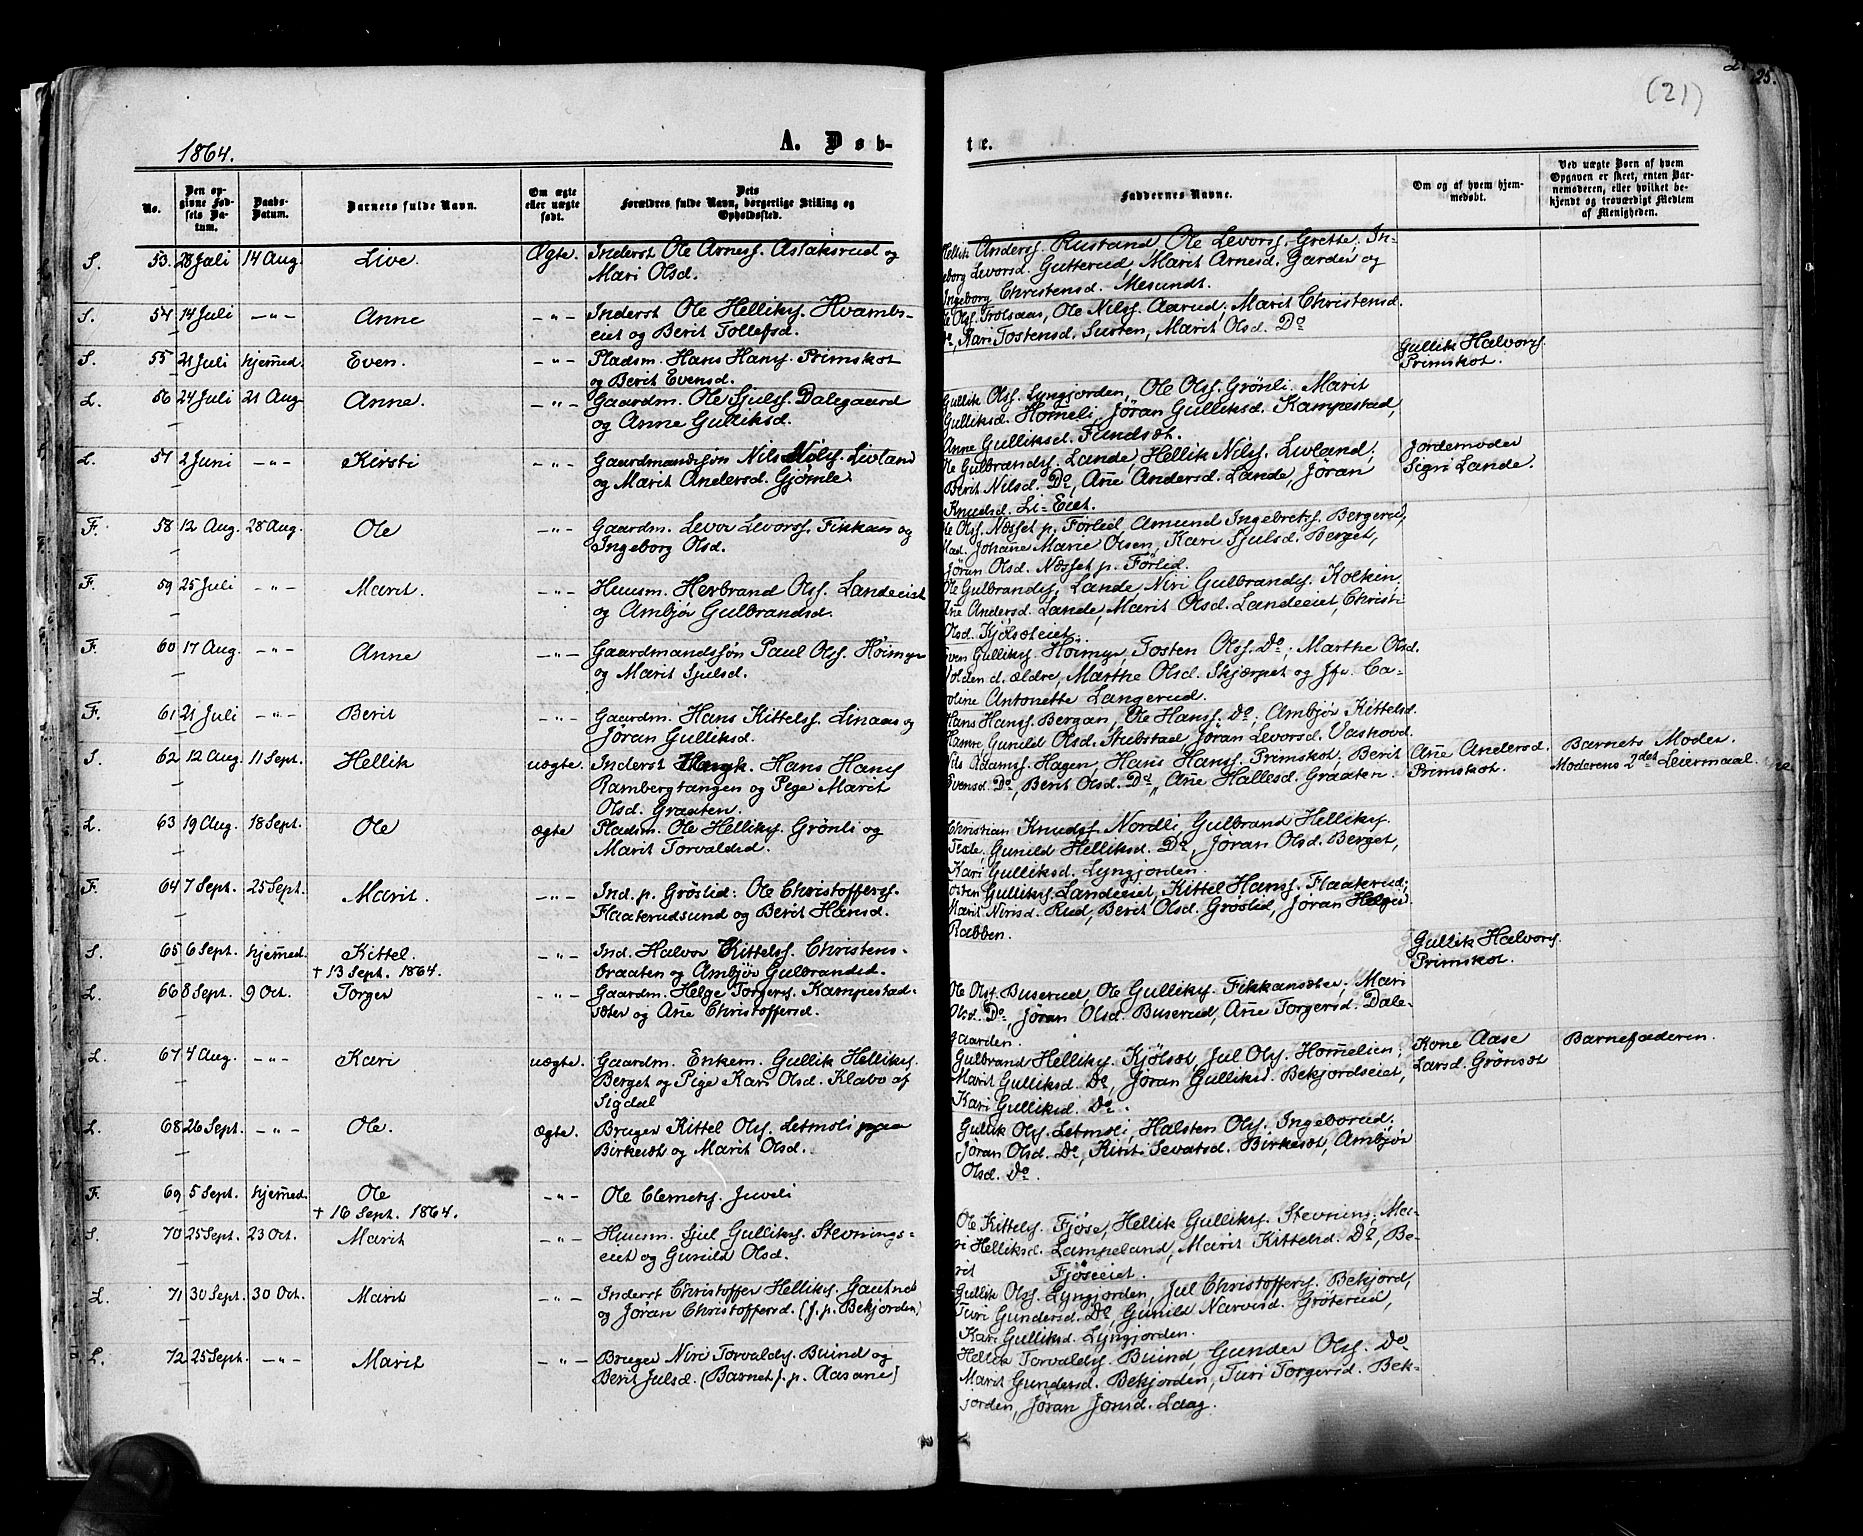 (21)
25.
1864.
A. Døb-
te.
No.
Den op-
givne Fød-
sels Da-
tum.
Daabs-
Datum.
Barnets fulde Navn.
Om ægte
eller uægte
født.
Dets
Forældres fulde Navn, borgerlige Stilling og
Opholdssted.
Faddernes Navne.
Om og af hvem hjem-
medøbt.
Ved uægte Børn af hvem
Opgaven er skeet, enten Bar-
nemoderen, eller hvilket be-
kjendt og troværdigt Medlem
af Menigheden.
S. 53. 28 Juli 14 Aug. Live. Ægte. Inderst Ole Arness. Aslaksrud og
Mari Olsd.
Hellik Anderss. Rustand, Ole Levorss. Grette, In-
geborg Levorsd. Gutterud, Marit Arnesd. Garder og
Ingeborg Christensd. Mesundt.
S. 54 14 Juli -"- Anne -"- Inderst Ole Helliks. Hvambs-
eiet og Berit Tollefsd.
Ole Olss. Trolsaas, Ole Nilss. Aarud, Marit Christensd.
Do, Kari Tostensd. Surten, Marit Olsd. Do
S. 55 21 Juli hjemed. Even. -"- Pladsm. Hans Hanss. Primskot
og Berit Evensd.
Gullik Halvors.
Primskot.
L. 56 24 Juli 21 Aug. Anne. -"- Gaardm. Ole Sjuls. Dalegaard
og Anne Gulliksd.
Gullik Olss. Lyngjorden, Ole Olss. Grönli, Marit
Gulliksd. Homeli, Jøran Gulliksd. Kampestad,
Anne Gulliksd. Fundsæt.
L. 57 2 Juni -"- Kirsti -"- Gaardmandssøn Nils Nilss. Livland
og Marit Andersd. Gjømle.
Ole Gulbrands. Lande, Hellik Nilss. Livland,
Berit Nilsd. Do, Ane Andersd. Lande, Jøran
Knudsd. Li-Eiet.
Jordemoder
Sigri Lande.
F. 58 12 Aug. 28 Aug. Ole -"- Gaardm. Levor Levorss. Fikkan og
Ingeborg Olsd.
Ole Olss. Næsset p. Förlid, Amund Ingebretss. Bergerud,
Mad. Johane Marie Olsen, Kari Sjulsd. Berget,
Jøran Olsd. Næsset p. Förlid.
F. 59 25 Juli -"- Marit. -"- Huusm. Herbrand Olss. Landeeiet
og Ambjør Gulbrandsd.
Ole Gulbrands. Lande, Niri Gulbrands. Kolkin,
Ane Andersd. Lande, Marit Olsd. Landeeiet, Christi
Olsd. Kjölsæteiet.
F. 60 17 Aug. -"- Anne -"- Gaardmandssön Paul Olss. Höimyr
og Marit Sjulsd.
Even Gulliks. Höimyr, Tosten Olss. Do, Marthe Olsd.
Volden d. ældre, Marthe Olsd. Skjærpet og Jfr. Ca-
roline Antonette Langerud.
F. 61 21 Juli -"- Berit -"- Gaardm. Hans Kittels. Linaas og
Jöran Gulliksd.
Hans Hanss. Bergan, Ole Hanss. Do, Ambjör Kittelsd.
Hamre, Gunild Olsd. Stubstad, Jøran Levorsd. Vashovd.
S. 62 12 Aug. 11 Sept. Hellik uægte. Inderst Ungk. Hans Hanss.
Rambergtangen og Pige Marit
Olsd. Graaten.
Nils Adamss. Hagen, Hans Hanss. Primskot, Berit
Evensd. Do, Berit Olsd. Do, Ane Hallesd. Graaten.
Ane Andersd.
Primskot.
Barnets Moder.
Moderens 2det Leiermaal.
L. 63 19 Aug. 18 Sept. Ole ægte Pladsm. Ole Helliks. Grönli og
Marit Torvaldsd.
Christian Knudss. Nordli, Gulbrand Helliks.
Gunild Helliksd. Do, Jøran Olsd. Berget,
Kari Gulliksd. Lyngjorden.
F. 64 7 Sept. 25 Sept. Marit. -"- Ind. p. Gröslid: Ole Christoffers.
Flaaterudsund og Berit Hansd.
Tosten Gulliks. Landeeiet, Kittel Hanss. Flaaterud,
Marit Nirisd. Rud, Berit Olsd. Gröslid, Jøran Helges
Rabben.
S. 65 6 Sept. hjemed. Kittel. -"- Ind. Halvor Kittelss. Christens-
† 13 Sept. 1864.
braaten og Ambjör Gulbrandsd.
Gullik Halvors.
Primskot.
L. 66 8 Sept. 9 Oct. Torger -"- Gaardm. Helge Torgers. Kampestad-
sæter og Ane Christoffersd.
Ole Olss. Buserud, Ole Gulliks. Fikkansæter, Mari
Olsd. Do, Jøran Olsd. Buserud, Ane Torgersd. Dale-
gaarden.
L. 67 4 Aug. -"- Kari uægte. Gaardm. Enkem. Gullik Helliks.
Berget og Pige Kari Olsd. Klabo af
Sigdal
Gulbrand Helliks. Kjölsæt, Jul Ols. Homelien,
Marit Gulliksd. Do, Jøran Gulliksd. Bekjordseiet,
Kari Gulliksd. Do.
Kone Aase
Larsd. Grönsæt
Barnefaderen.
L. 68 26 Sept. -"- Ole. ægte. Bruger Kittel Olss. Letmoli paa
Birkesæt og Marit Olsd.
Gullik Olss. Letmoli, Halsten Olss. Ingeborud,
Jöran Olsd. Do, Kirit Sevatsd. Birkesæt, Ambjör
Olsd. Do.
F. 69 5 Sept. hjemed. Ole -"- Ole Clemets. Juveli
† 16 Sept. 1864.
S. 70 25 Sept. 23 Oct. Marit -"- Huusm. Sjul Gulliks. Stevnings-
eiet og Gunild Olsd.
Ole Kittels. Fjöse, Hellik Gulliks. Stevning, Ma-
ri Helliksd. Lampeland, Marit Kittelsd. Do, Be-
rit Fjöseeiet.
L. 71 30 Sept. 30 Oct. Marit -"- Inderst Christoffer Helliks. Gautnes
og Jøran Christoffersd. (f. p. Bekjorden)
Gullik Olss. Lyngjorden, Jul Christoffers. Bekjord,
Turi Gundersd. Do, Gunild Narvesd. Gröterud,
Kari Gulliksd. Lyngjorden.
L. 72 25 Sept. -"- Marit -"- Bruger Niri Torvalds. Buind og
Berit Julsd. (Barnet f. p. Aasane)
Hellik Torvalds. Buind, Gunder Olss. Do
Marit Gundersd. Bekjorden, Turi Torgersd. Bek-
jorden, Jøran Jonsd. Laag.